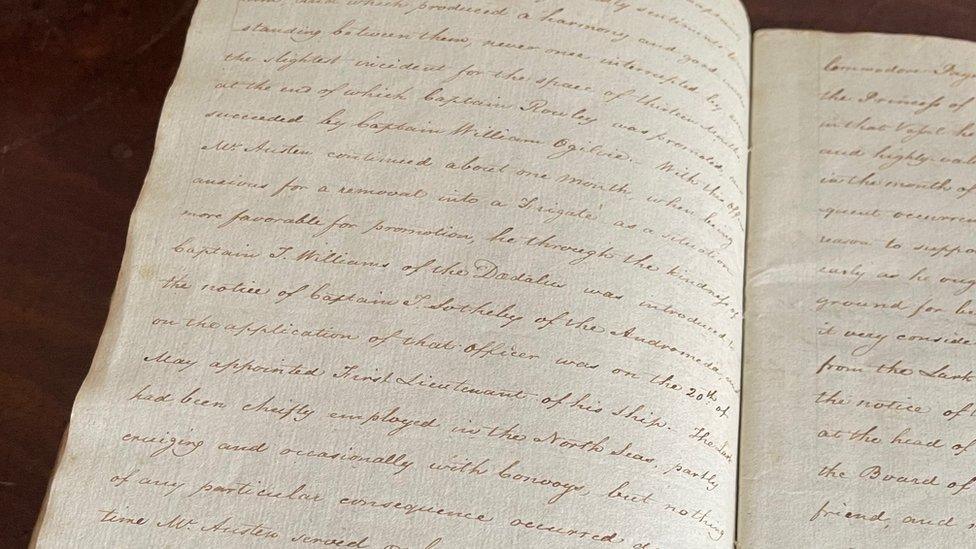 him, and which produced a harmony and good under
standing between them, never once interrupted by
the slightest incident for the space of thirteen months
at the end of which Captain Rowley was promoted, and
succeeded by Captain William Ogilvie. – With this Offr.
Mr. Austen continued about one month, when being
anxious for a removal into a Frigate as a situation
more favorable for promotion, he through the kindness of
Captain T. Williams of the Dædalus was introduced to
the notice of Captain T. Sotheby of the Andromeda, and
on the application of that officer was on the 20th. of
May appointed First Lieutenant of his Ship. – The Lark
had been chiefly employed in the North Seas, partly
cruizing and occasionally with Convoys, but nothing
of any particular consequence occurred
time Mr. Austen served
Commodore
the Princess of
in that
and highly
in the month of
quent
reason to
early as he
ground for
it very
from the Lark
the notice of
at the head of
the Board of
friend, and